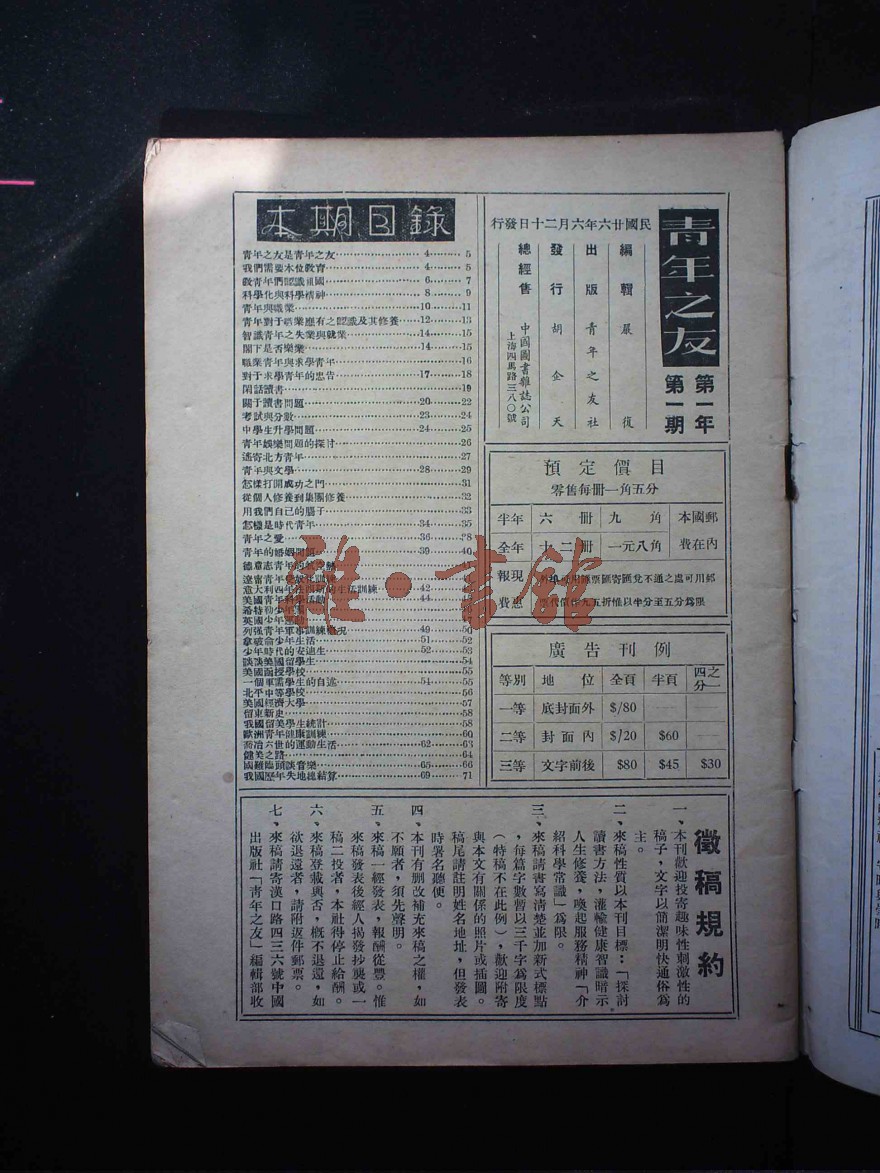 青年之友
第一年
第一期
民國廿六年六月二十日發行
編輯 嚴復
出版 青年之友社
發行 胡企天
總經售 中國圖書雜誌公司
上海四馬路三八〇號
預定價目
零售每冊一角五分
半年 六冊 九角 本國郵
全年 十二冊 一元八角 費在內
廣告刊例
等別 地位 全頁 半頁 四之分一
一等 底封面外 $/80
二等 封面內 $/20 $60
三等 文字前後 $80 $45 $30
本期目錄
青年之友是青年之友 4 5
我們需要本位教育 4 5
敬青年們認識祖國 6 7
科學化與科學精神 8 9
青年與職業 10 11
青年對于職業應有之認識及其修養 12 13
智識青年之失業與就業 14 15
閣下是否樂樂 14 15
職業青年與求學青年 16
對于求學青年的忠告 17 18
閑話讀書 19
關于讀書問題 20 22
考試與分數 23 24
中學生升學問題 24 25
青年娛樂問題的探討 26
遙寄北方青年 27
青年與文學 28 29
怎樣打開成功之門 31
從個人修養到集團修養 32
用我們自己的腦子 33
怎樣是時代青年 34 35
青年之愛 36 38
青年的婚姻問題 39 40
德意志青年的
意大利四年性四期的生活訓練 42
美國青年科學活動 44
希特勒少年團
英國少年運動
列强青年軍事訓練概況 49 50
拿破侖少年生活 51 52
少年時代的安迪生 52 53
談談美國留學生 54
美國函授學校 55
一個軍需學生的自述 54 55
北平中等學校 56
美國經濟大學 57
留東新史 58
我國留美學生統計 58
歐洲青年健康訓練 60
喬治六世的運動生活 62 63
健美之路 64
國難臨頭談音樂 65 66
我國歷年失地總結算 69 71
徵稿規約
一、本刊歡迎投寄趣味性刺激性的
稿子，文字以簡潔明快通俗爲
主。
二、來稿性質以本刊目標：「探討
讀書方法，灌輸健康智識暗示
人生修養，喚起服務精神「介
紹科學常識」爲限。
三、來稿請書寫清楚並加新式標點
，每篇字數暫以三千字爲限度
（特稿不在此例），歡迎附寄
與本文有關係的照片或插圖。
稿尾請註明姓名地址，但發表
時署名聽便。
四、本刊有删改補充來稿之權，如
不願者，須先聲明。
五、來稿一經發表，報酬從豐。惟
來稿發表後經人揭發抄襲或一
稿二投者，本社得停止給酬。
六、來稿登載與否，概不退還，如
欲退還者，請附返件郵票。
七、來稿請寄漢口路四三六號中國
出版社「青年之友」編輯部收
雜·書館